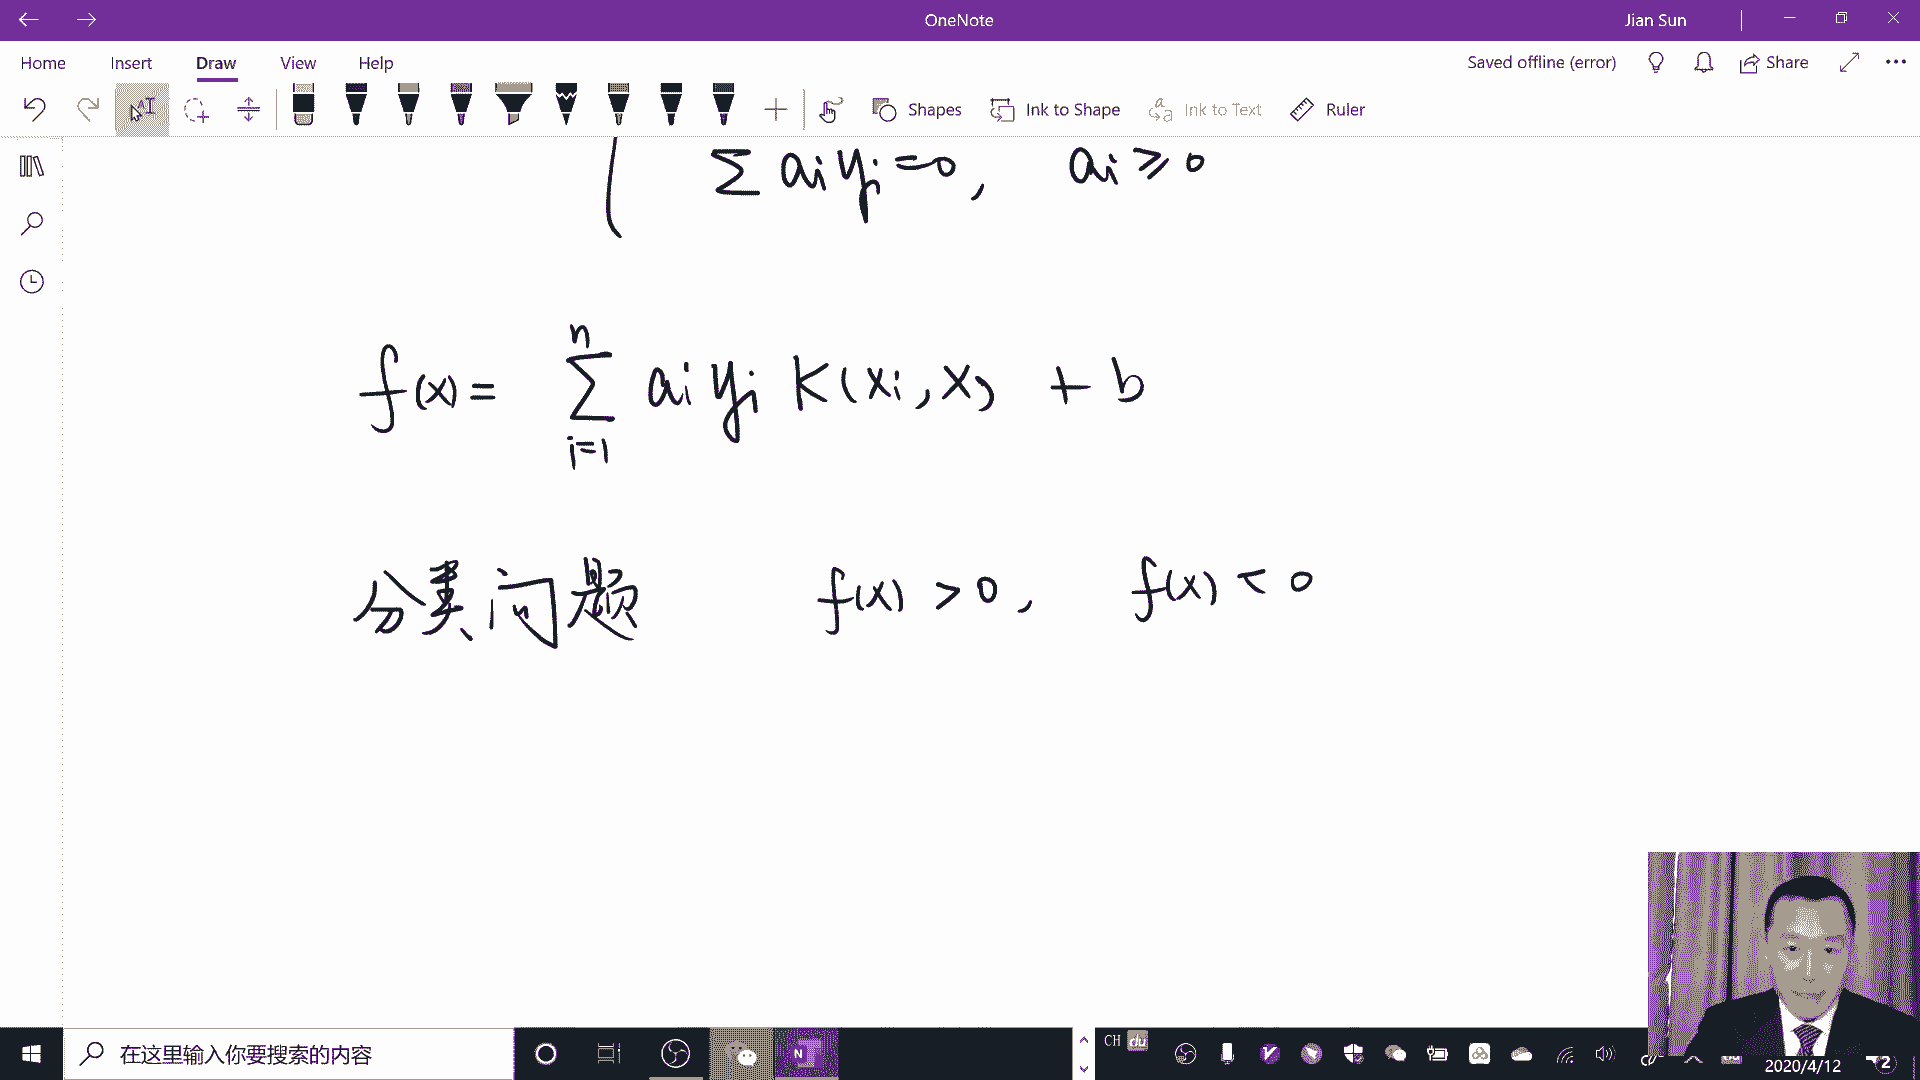 OneNote
Jian Sun
Home Insert Draw View Help
Saved offline (error)
Share
Shapes
Ink to Shape
Ink to Text
Ruler
∑ aiyi=0, ai≥0
f(x)= ∑ⁿᵢ₌₁ aiyi K(xi,x) + b
分类问题 f(x)>0, f(x)<0
在这里输入你要搜索的内容
N
CH du
2020/4/12
2